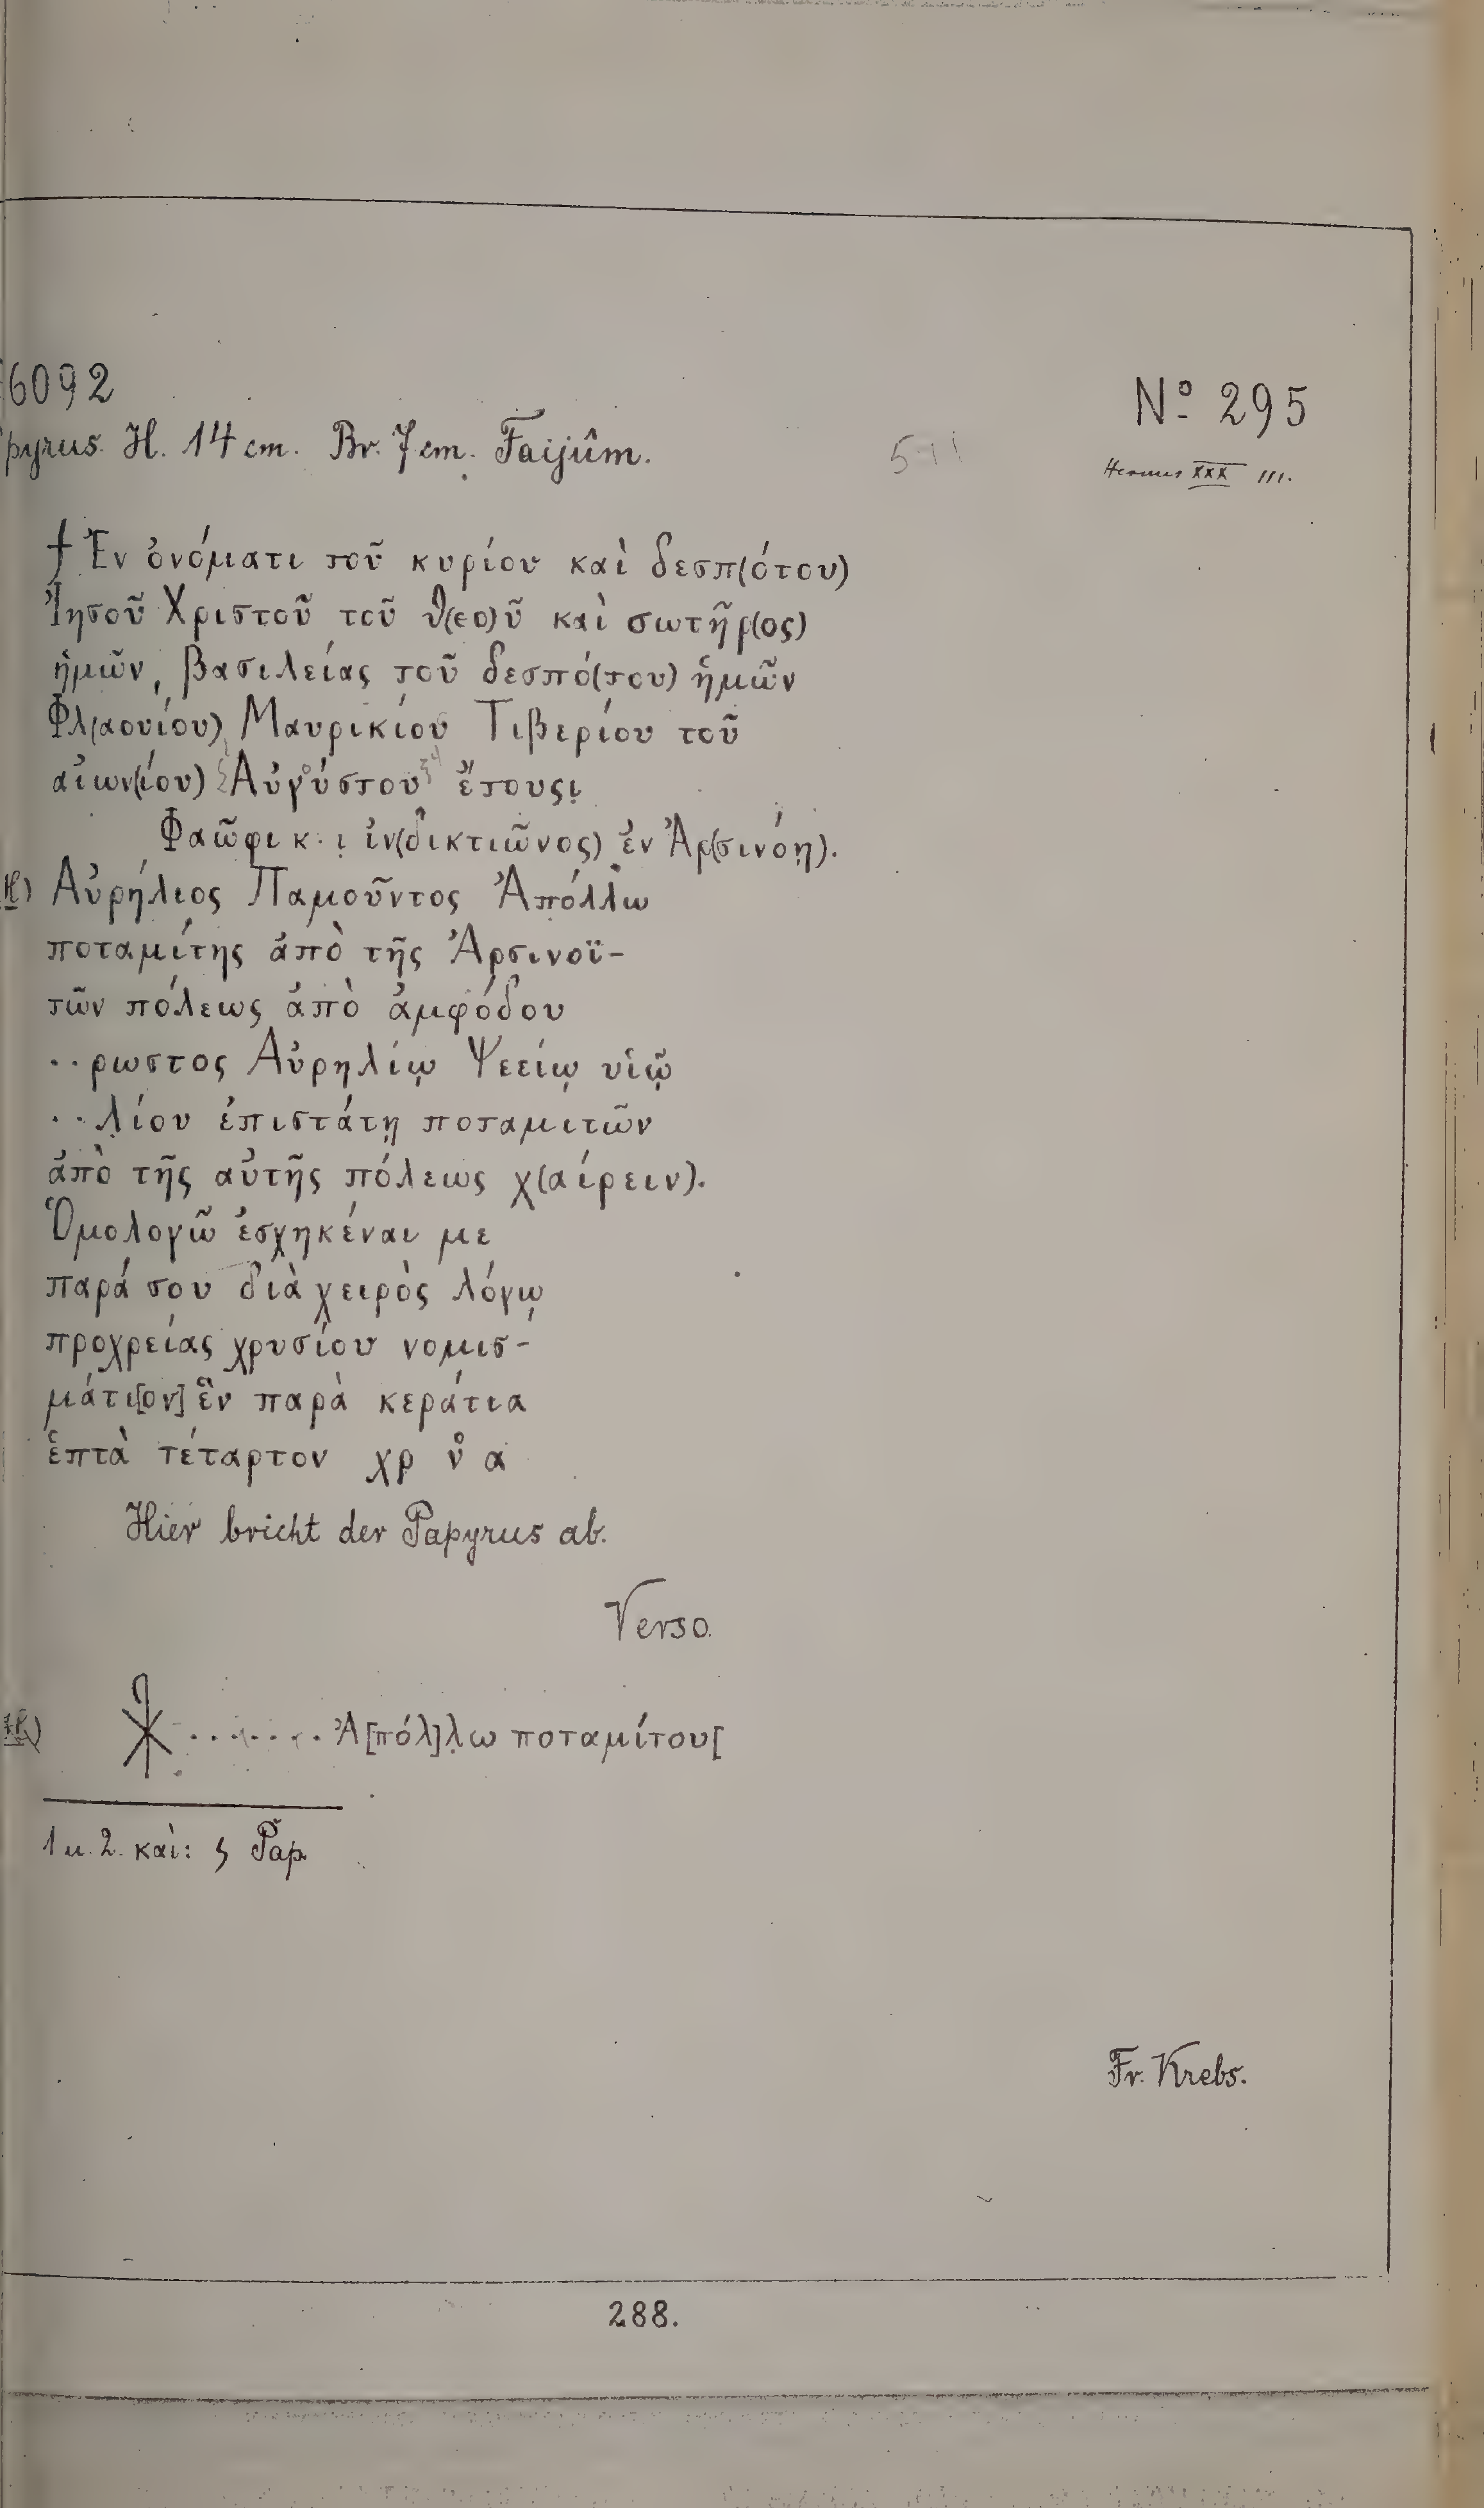 6092
N° 295
pyrus. H. 14 cm. Br. 7 cm. Faijûm.
Hermes XXX III.
† Ἐν ὀνόματι τοῦ κυρίου καὶ δεσπ(ότου)
Ἰησοῦ Χριστοῦ τοῦ θ(εο)ῦ καὶ σωτῆρ(ος)
ἡμῶν, βασιλείας τοῦ δεσπό(του) ἡμῶν
Φλ(αουίου) Μαυρικίου Τιβερίου τοῦ
αἰων(ίου) Αὐγούστου ἔτους ι̣
Φαῶφι κ . ι̣ ἰν(δικτιῶνος) ἐν Ἀρ(σινόῃ).
Αὐρήλιος Παμοῦντος Ἀπόλλω
ποταμίτης ἀπὸ τῆς Ἀρσινοϊ-
τῶν πόλεως ἀπὸ ἀμφόδου
. . ρωστος Αὐρηλίῳ Ψεείῳ υἱῷ
. . λίου ἐπιστάτῃ ποταμιτῶν
ἀπὸ τῆς αὐτῆς πόλεως χ(αίρειν).
Ὁμολογῶ ἐσχηκέναι με
παρά σου διὰ χειρὸς λόγῳ
προχρείας χρυσίου νομισ-
μάτι[ον] ἓν παρὰ κεράτια
ἑπτὰ τέταρτον χρ ν° α
Hier bricht der Papyrus ab.
Verso.
. . . . . . . Ἀ[πόλ]λω ποταμίτου[
1 u. 2. καὶ: ϛ Pap.
Fr. Krebs.
288.